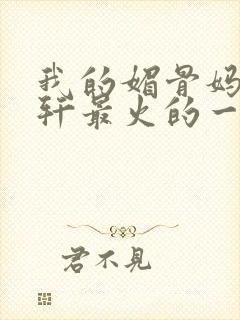 我的媚骨妈
轩最火的一
君不见